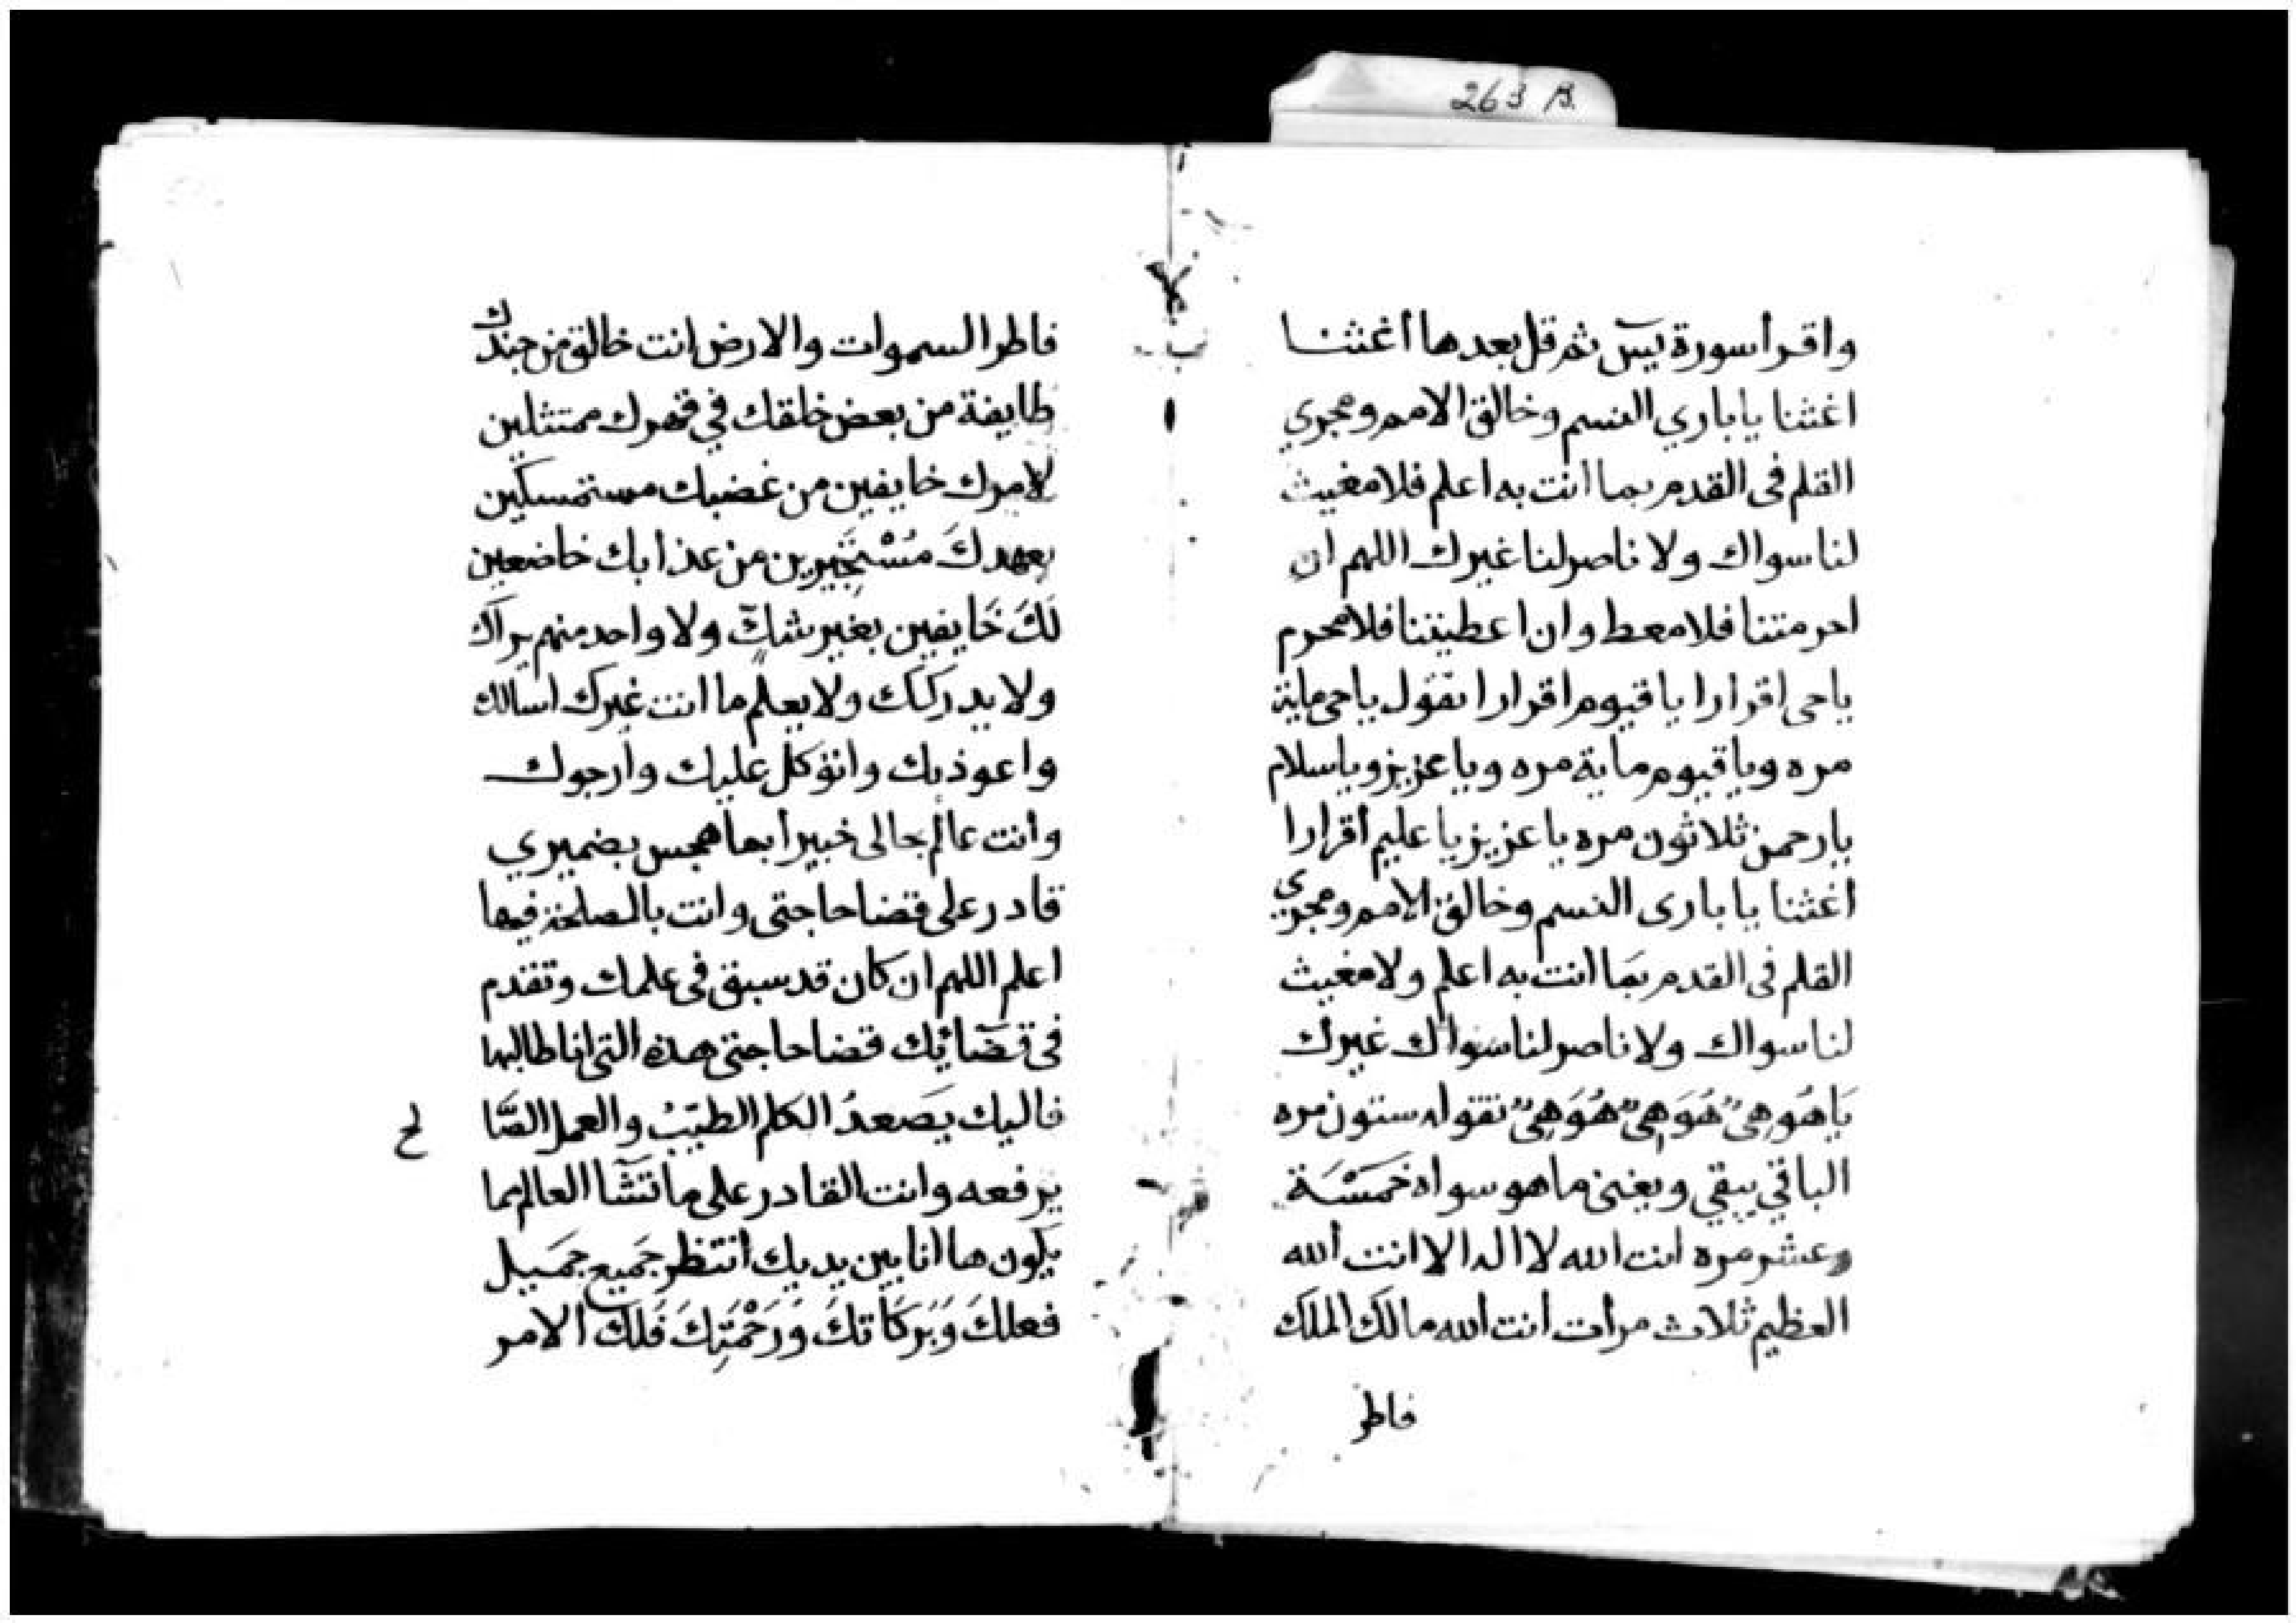 263 B.
واقرأ سورة يسٓ ثم قل بعدها أغثنا
اغثنا يا باري النسم وخالق الامم ومجري
القلم فى القدم بما انت به اعلم فلا مغيث
لنا سواك ولا ناصر لنا غيرك اللهم ان
احرمتنا فلا معط وان اعطيتنا فلا محرم
ياحى اقرارا يا قيوم اقرارا تقول ياحى ماية
مره ويا قيوم ماية مره ويا عزيز ويا سلام
يا رحمن ثلاثون مره يا عزيز يا عليم أقرارا
اغثنا يا بارى النسم وخالق الامم ومجري
القلم فى القدم بمَا انت به اعلم ولا مغيث
لنا سواك ولا ناصر لنا سَواك غيرك
يَا هُو هِىَ هُوَ هِىَ هُوَ هِىَ تقوله ستون مره
الباقي يبقي ويفنى ما هو سواه خَمسْسَة
وعشر مره انت الله لا اله الا انت ألله
العظيم ثلاث مرأت أنت ألله مالك الملك
فاطر
فاطر السموات والارض انت خالق من جندك
طايفة من بعض خلقك في قهرك ممتثلين
لامرك خايفين من غضبك مستمسكين
بعهدكَ مُسْتَجِيرين من عذابك خاضعين
لَكَ خَايفين بغير شكٍّ ولا واحد منهم يراك
ولا يدركك ولا يعلم ما انت غيرك اسالك
واعوذ بك واتوكل عليك وأرجوك
وأنت عالم بحالى خبيرأ بما هجس بضميري
قادر على قضا حاجتى وانت بالمصلحة فيها
اعلم اللهم ان كان قد سبق فى علمك وتقدم
فى قضَآئِك قضا حاجتى هذه التى انا طالبها
فاليك يَصَعدُ الكلم الطيّبُ والعمل الصَّا
لح
يرفعه وانت القادر على ما تَشَآ العالم بما
يكون ها انا بين يديك أنتظر جَميع جمَيل
فعلكَ وَبَركَاتكَ وَرَحْمَتِكَ فَلك الامر